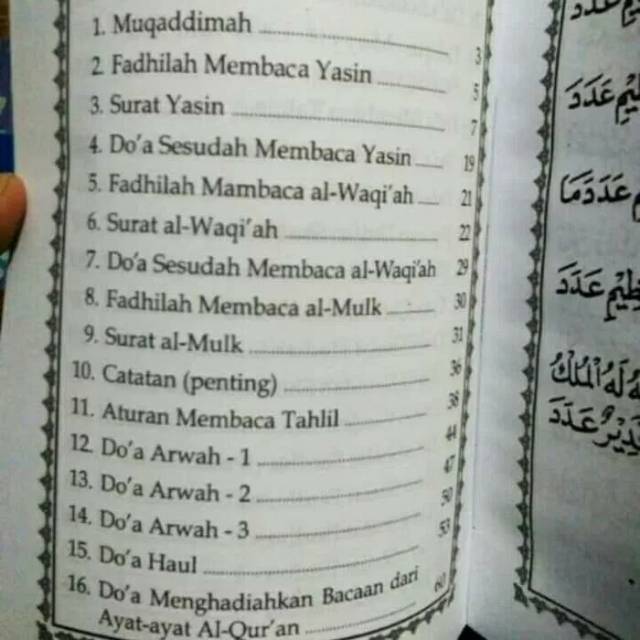 1. Muqaddimah 3
2. Fadhilah Membaca Yasin 5
3. Surat Yasin 7
4. Do'a Sesudah Membaca Yasin 19
5. Fadhilah Mambaca al-Waqi'ah 21
6. Surat al-Waqi'ah 22
7. Do'a Sesudah Membaca al-Waqi'ah 29
8. Fadhilah Membaca al-Mulk 30
9. Surat al-Mulk 31
10. Catatan (penting) 36
11. Aturan Membaca Tahlil 38
12. Do'a Arwah - 1 44
13. Do'a Arwah - 2 47
14. Do'a Arwah - 3 50
15. Do'a Haul 53
16. Do'a Menghadiahkan Bacaan dari
Ayat-ayat Al-Qur'an 60
عَدَدَ
عَدَدَ
عَدَدَمَا
عَدَدَ
لَهُ الْمُلْكُ
عَدَدَ